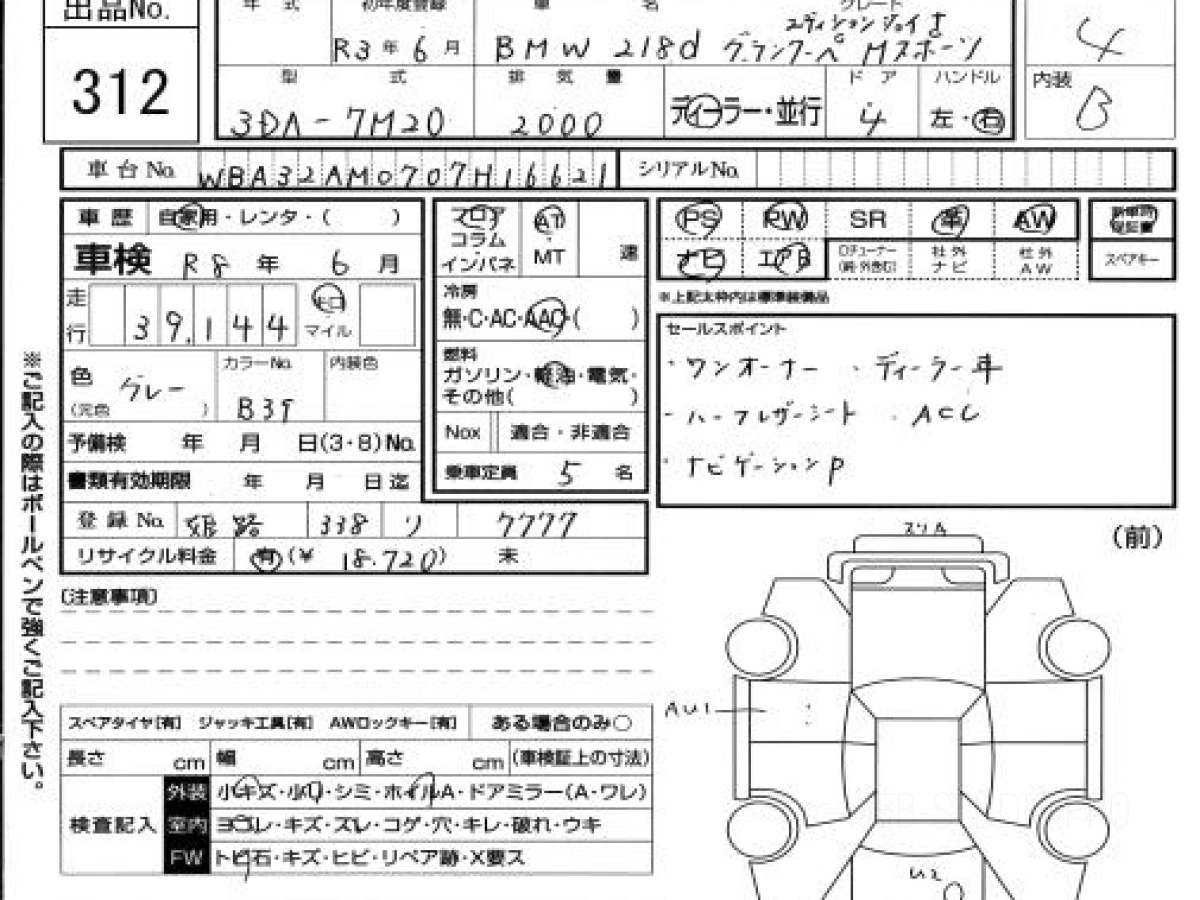 出品No.
312
年 式 初年度登録 車 名 グレード
R3年6月 BMW 218d グランクーペ Mスポーツ
エディションジョイ+
4
型 式 排 気 量 ドア ハンドル 内装
3DA-7M20 2000 ディーラー・並行 4 左・右 B
車台No. WBA32AM0707H16621 シリアルNo.
車歴 自家用・レンタ・( )
車検 R8年 6月
走行 39,144 キロ マイル
色 グレー
(元色 )
カラーNo. B39 内装色
予備検 年 月 日(3・8)No.
書類有効期限 年 月 日迄
登録No. 姫路 338 リ 7777
リサイクル料金 有(¥ 18.720) 未
フロア
コラム
インパネ
AT
・
MT
速
冷房
無・C・AC・AAC・( )
燃料
ガソリン・軽油・電気・
その他( )
Nox 適合・非適合
乗車定員 5 名
PS PW SR 革 AW 新車時保証書
ナビ エアB CDチューナー(純・外含む) 社外ナビ 社外AW スペアキー
※上記太枠内は標準装備品
セールスポイント
・ワンオーナー ・ディーラー車
・ハーフレザーシート ・ACC
・ナビゲーションP
(注意事項)
※ご記入の際はボールペンで強くご記入下さい。
スペアタイヤ[有] ジャッキ工具[有] AWロックキー[有] ある場合のみ○
長さ cm 幅 cm 高さ cm (車検証上の寸法)
検査記入
外装 小キズ・小凹・シミ・ホイルA・ドアミラー(A・ワレ)
室内 ヨゴレ・キズ・ズレ・コゲ・穴・キレ・破れ・ウキ
FW トビ石・キズ・ヒビ・リペア跡・X要ス
スリA
(前)
AU1
U2